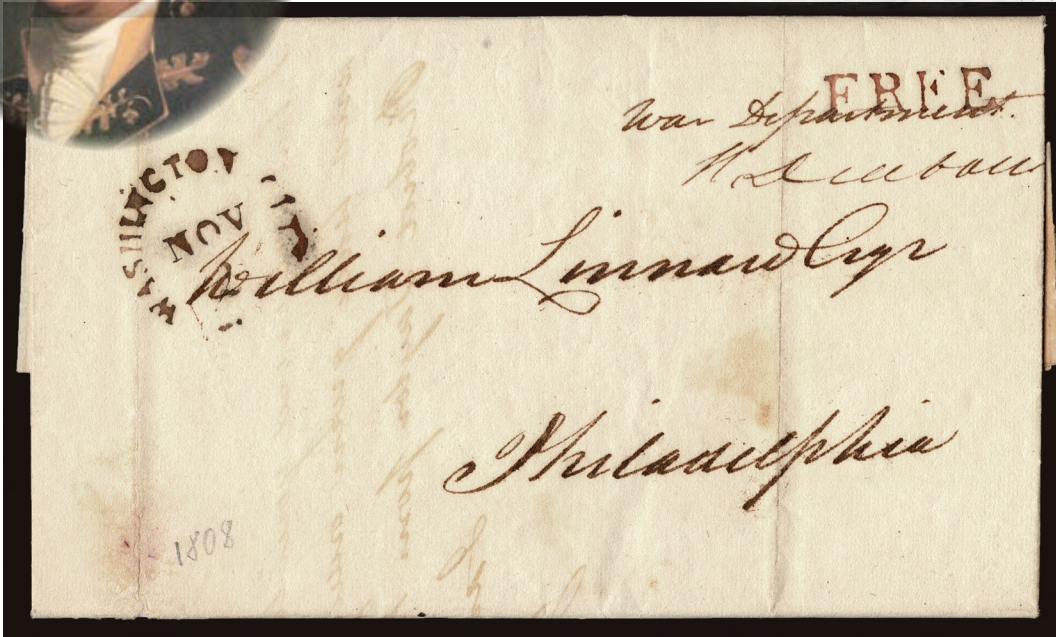 FREE
War Department.
H. Dearborn
WASHINGTON CITY
NOV
William Linnard Esqr
Philadelphia
1808